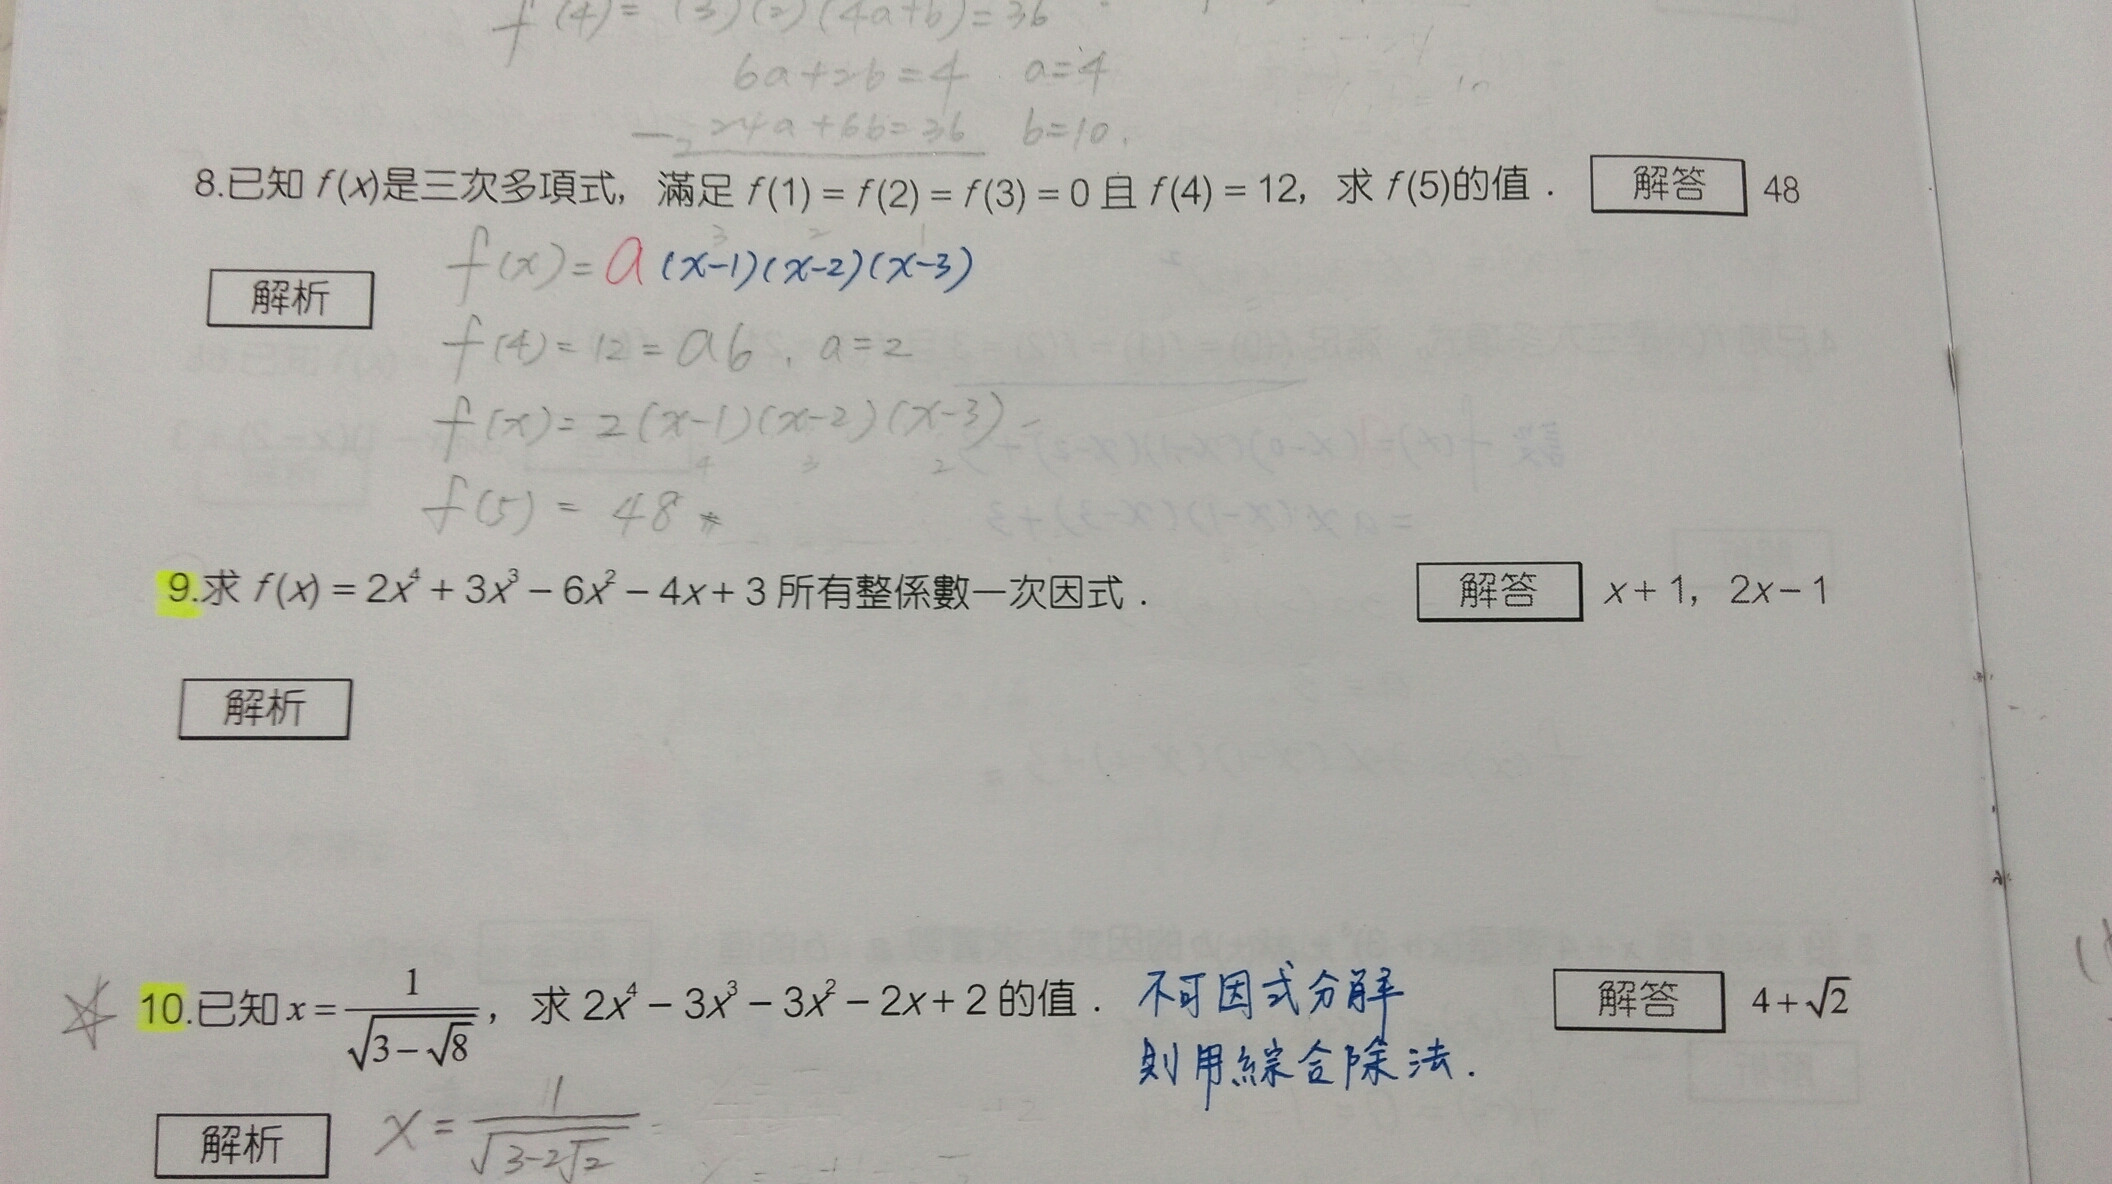 f(4) = (3)(2)(4a+b)=36
6a+2b=4 a=4
- 24a+6b=36 b=10.
8.已知 f(x)是三次多項式，滿足 f(1) = f(2) = f(3) = 0 且 f(4) = 12，求 f(5)的值． 解答 48
3 2 1
f(x)= a(x-1)(x-2)(x-3)
解析
f(4)=12=a6, a=2
f(x)=2(x-1)(x-2)(x-3)
4 3 2
f(5) = 48
9.求 f(x) = 2x⁴ + 3x³ − 6x² − 4x + 3 所有整係數一次因式． 解答 x + 1，2x − 1
解析
10.已知 x = 1/√(3−√8)，求 2x⁴ − 3x³ − 3x² − 2x + 2 的值． 不可因式分解 解答 4 + √2
則用綜合除法.
解析 x = 1/√(3-2√2)